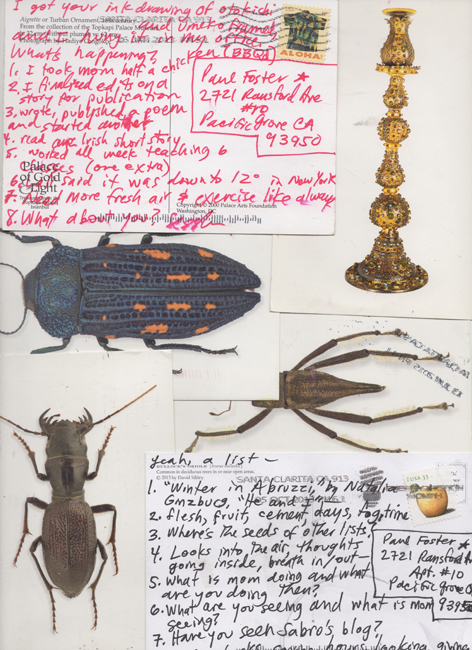 I got your ink drawing of otokichi
Aigrette or Turban Ornament,
From the collection of the Topkapi Palace Museum
and I hung it on my office
What's happening?
chicken (BBQ)
1. I took mom half a
2. I finalized edits on a
story for publication
3. wrote, published a poem
and started another
4. read an Irish short story
5. worked all week teaching 6
classes (one extra)
6. said it was down to 12° in New York
7. Need More fresh air & exercise like always
8. What about you?
Palace
of Gold
& Light
Istanbul
Copyright © 2000 Palace Arts Foundation
Washington, DC
ALOHA
Paul Foster
2721 Ransford Ave
#10
Pacific Grove CA
93950
SANTA CLARITA CA 913
Common in deciduous trees in or near open areas.
yeah, a list -
1. "Winter in Abruzzi," by Natalia
Ginzburg, "He and I"
2. flesh, fruit, cement, days, tog, time
3. Where's the seeds of other lists?
4. Looks into the air, thoughts
going inside, breath in/out
5. What is mom doing and what
are you doing then?
6. What are you seeing and what is mom
seeing?
7. Have you seen Sabro's blog?
USA 33
Paul Foster
2721 Ransford
Apt. #10
Pacific Grove C
9395